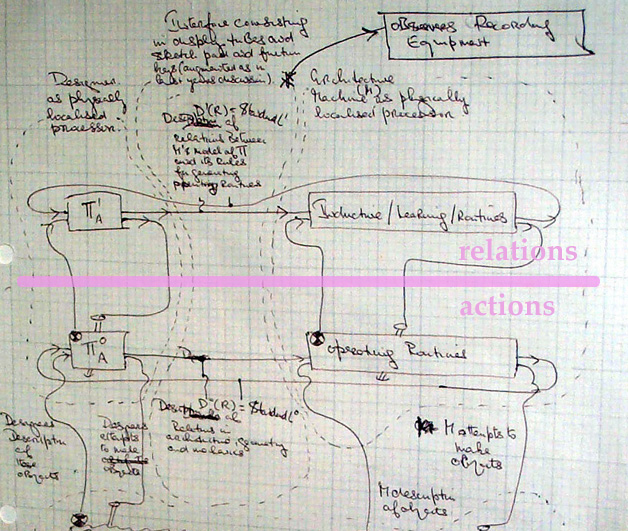 Interface consisting
in display tubes and
sketch pad and function
keys (augmented as in
last years discussion).
Observers Recording
Equipment
Designer
as physically
localised
processor.
Architecture
Machine (M) as physically
localised processor
D'(R) = Standard L'
of
Relations Between
M's model of Π
and its Rules
for generating
operating Routines
Π'A
Inductive/Learning/Routines
relations
actions
Π°A
Operating Routines
D°(R) = Standard L°
of
Relations in
architectural geometry
and mechanics
Designers
Description
of
objects
Designers
attempts
to make
objects
M attempts to
make
objects
M description
of objects